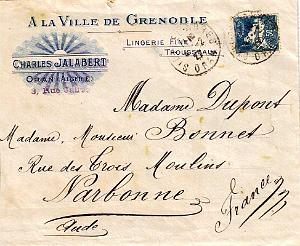 A LA VILLE DE GRENOBLE
LINGERIE FINE
TROUSSEAUX
CHARLES JALABERT
ORAN (ALGÉRIE)
3, Rue
Madame Dupont
Madame, Monsieur Bonnet
Rue des Trois Moulins
Narbonne
Aude
(France)